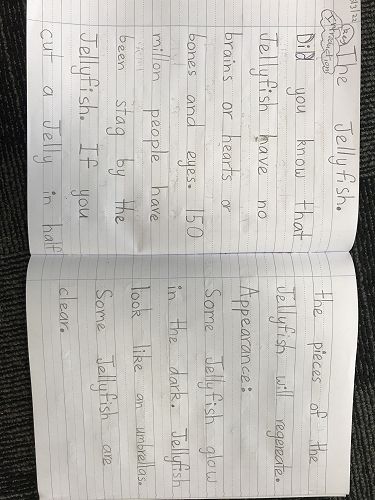 The Jellyfish.
Introduction
Did you know that
Jellyfish have no
brains or hearts or
bones and eyes. 150
milon people have
been stag by the
Jellyfish. If you
cut a Jelly in half
the pieces of the
Jellyfish will regenerate.
Appearance:
Some Jellyfish glow
in the dark. Jellyfish
look like an umbrellas.
Some Jellyfish are
clear.